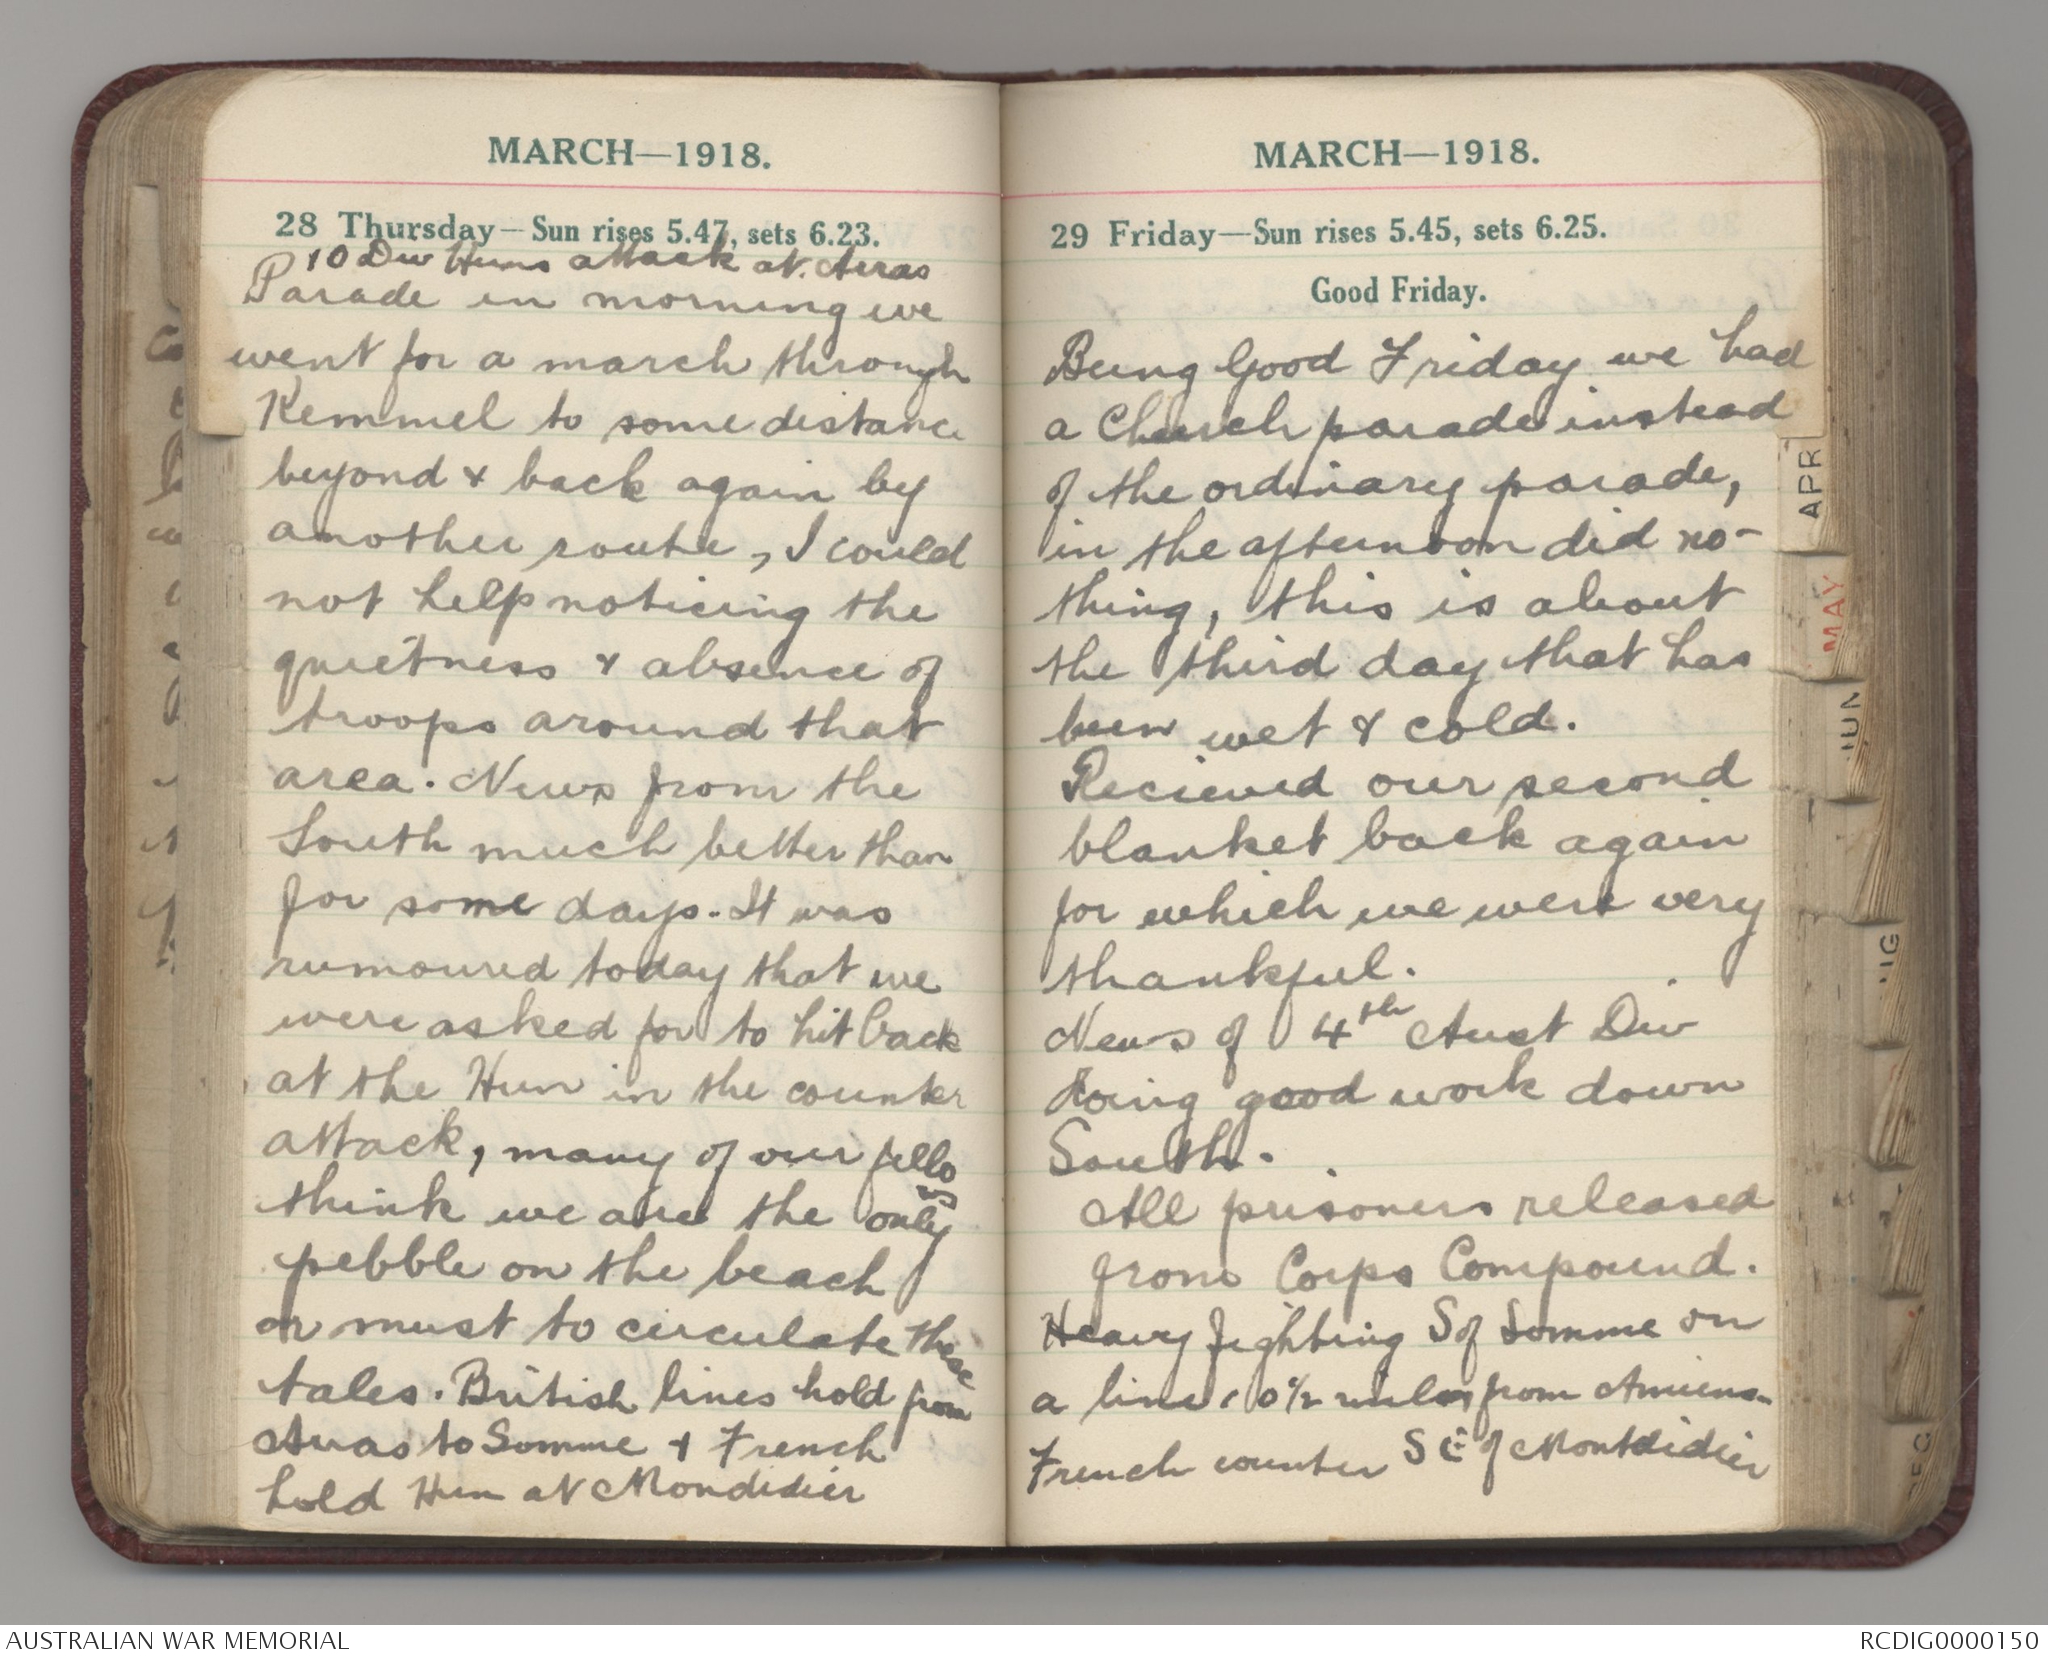 MARCH—1918.
28 Thursday—Sun rises 5.47, sets 6.23.
10 Div Huns attack at Arras
Parade in morning we
went for a march through
Kemmel to some distance
beyond & back again by
another route, I could
not help noticing the
quietness & absence of
troops around that
area. News from the
South much better than
for some days. It was
rumoured today that we
were asked for to hit back
at the Hun in the counter
attack, many of our fellows
think we are the only
pebble on the beach
or must to circulate these
tales. British lines hold from
Arras to Somme & French
hold Hun at Mondidier
MARCH—1918.
29 Friday—Sun rises 5.45, sets 6.25.
Good Friday.
Being Good Friday we had
a Church parade instead
of the ordinary parade,
in the afternoon did no-
thing, this is about
the third day that has
been wet & cold.
Recieved our second
blanket back again
for which we were very
thankful.
News of 4th Aust Div
doing good work down
South.
All prisoners released
from Corps Compound.
Heavy fighting S of Somme on
a line 10½ miles from Amiens.
French counter SE of Montdidier
APR
MAY
JUN
UG
DEC
AUSTRALIAN WAR MEMORIAL
RCDIG0000150